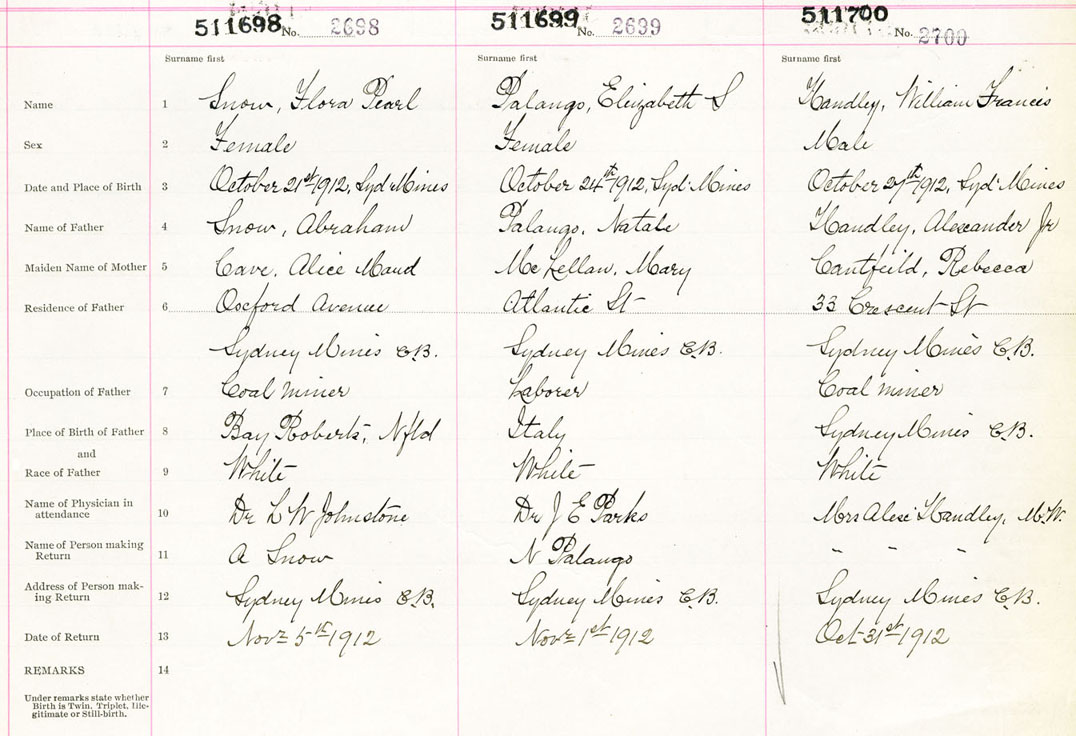 511698 No. 2698 511699 No. 2699 511700 No. 2700
Surname first Surname first Surname first
Name 1 Snow, Flora Pearl Palango, Elizabeth S Handley, William Francis
Sex 2 Female Female Male
Date and Place of Birth 3 October 21st 1912, Syd Mines October 24th 1912, Syd Mines October 27th 1912, Syd Mines
Name of Father 4 Snow, Abraham Palango, Natale Handley, Alexander Jr
Maiden Name of Mother 5 Cave, Alice Maud McLellan, Mary Cantfeild, Rebecca
Residence of Father 6 Oxford Avenue Atlantic St 33 Crescent St
Sydney Mines C.B. Sydney Mines C.B. Sydney Mines C.B.
Occupation of Father 7 Coal miner Laborer Coal miner
Place of Birth of Father 8 Bay Roberts, Nfld Italy Sydney Mines C.B.
and
Race of Father 9 White White White
Name of Physician in
attendance 10 Dr L W Johnstone Dr J E Parks Mrs Alex Handley, M.W.
Name of Person making
Return 11 A Snow N Palango " " "
Address of Person mak-
ing Return 12 Sydney Mines C.B. Sydney Mines C.B. Sydney Mines C.B.
Date of Return 13 Novr 5th 1912 Novr 1st 1912 Oct 31st 1912
REMARKS 14
Under remarks state whether
Birth is Twin, Triplet, Ille-
gitimate or Still-birth.